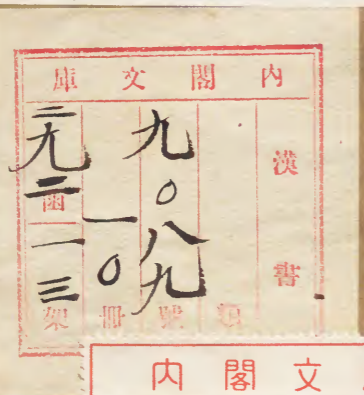 内閣文庫
漢書
類
九〇八九號
一〇冊
二九二函一三架
内閣文